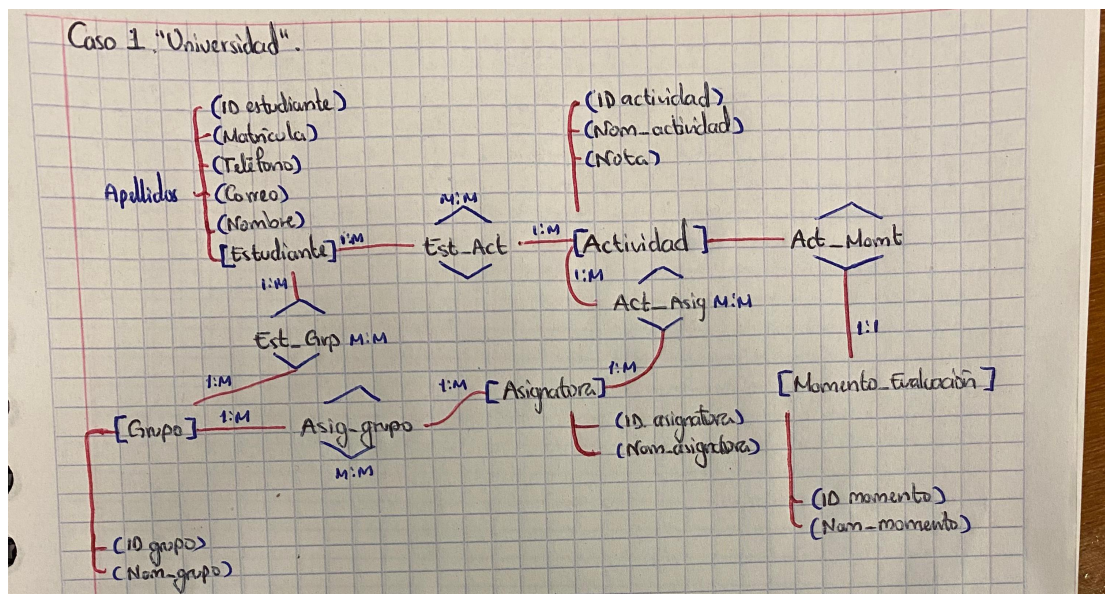 Caso 1. "Universidad".
(ID estudiante)
(Matricula)
(Teléfono)
Apellidos (Correo)
(Nombre)
[Estudiante] 1:M
M:M
Est_Act
1:M
(ID actividad)
(Nom_actividad)
(Nota)
[Actividad]
Act_Momt
1:M
Act_Asig M:M
1:M
Est_Grp M:M
1:M
1:1
[Momento_Evaluación]
(ID momento)
(Nom-momento)
[Grupo] 1:M
Asig-grupo
M:M
1:M
[Asignatura]
1:M
(ID asignatura)
(Nom-asignatura)
(ID grupo)
(Nom-grupo)